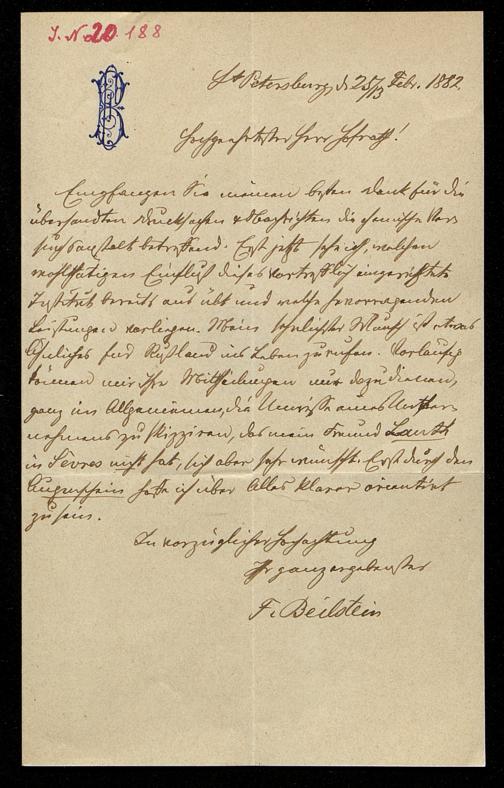 J. N. 20.188
B
St Petersburg, d. 25/3 Febr. 1882.
Hochgeehrtester Herr Hofrath!
Empfangen Sie meinen besten Dank für die
übersandten Drucksachen & Nachrichten die chemische Ver
suchsanstalt betreffend. Erst jetzt sehe ich, welchen
wohlthätigen Einfluß dieses vortrefflich eingerichtete
Institut bereits aus übt und welche hervorragenden
Leistungen vorliegen. Mein sehnlichster Wunsch ist etwas
Ähnliches für Rußland ins Leben zu rufen. Vorläufig
können mir Ihre Mittheilungen nur dazu dienen,
ganz im Allgemeinen, die Umrisse eines Unter
nehmens zu skizziren, das mein Freund Lauth
in Sèvres nicht hat, sich aber sehr wünscht. Erst durch den
Augenschein hoffe ich über Alles klarer orientirt
zu sein.
In vorzüglicher Hochachtung
Ihr ganz ergebenster
F. Beilstein